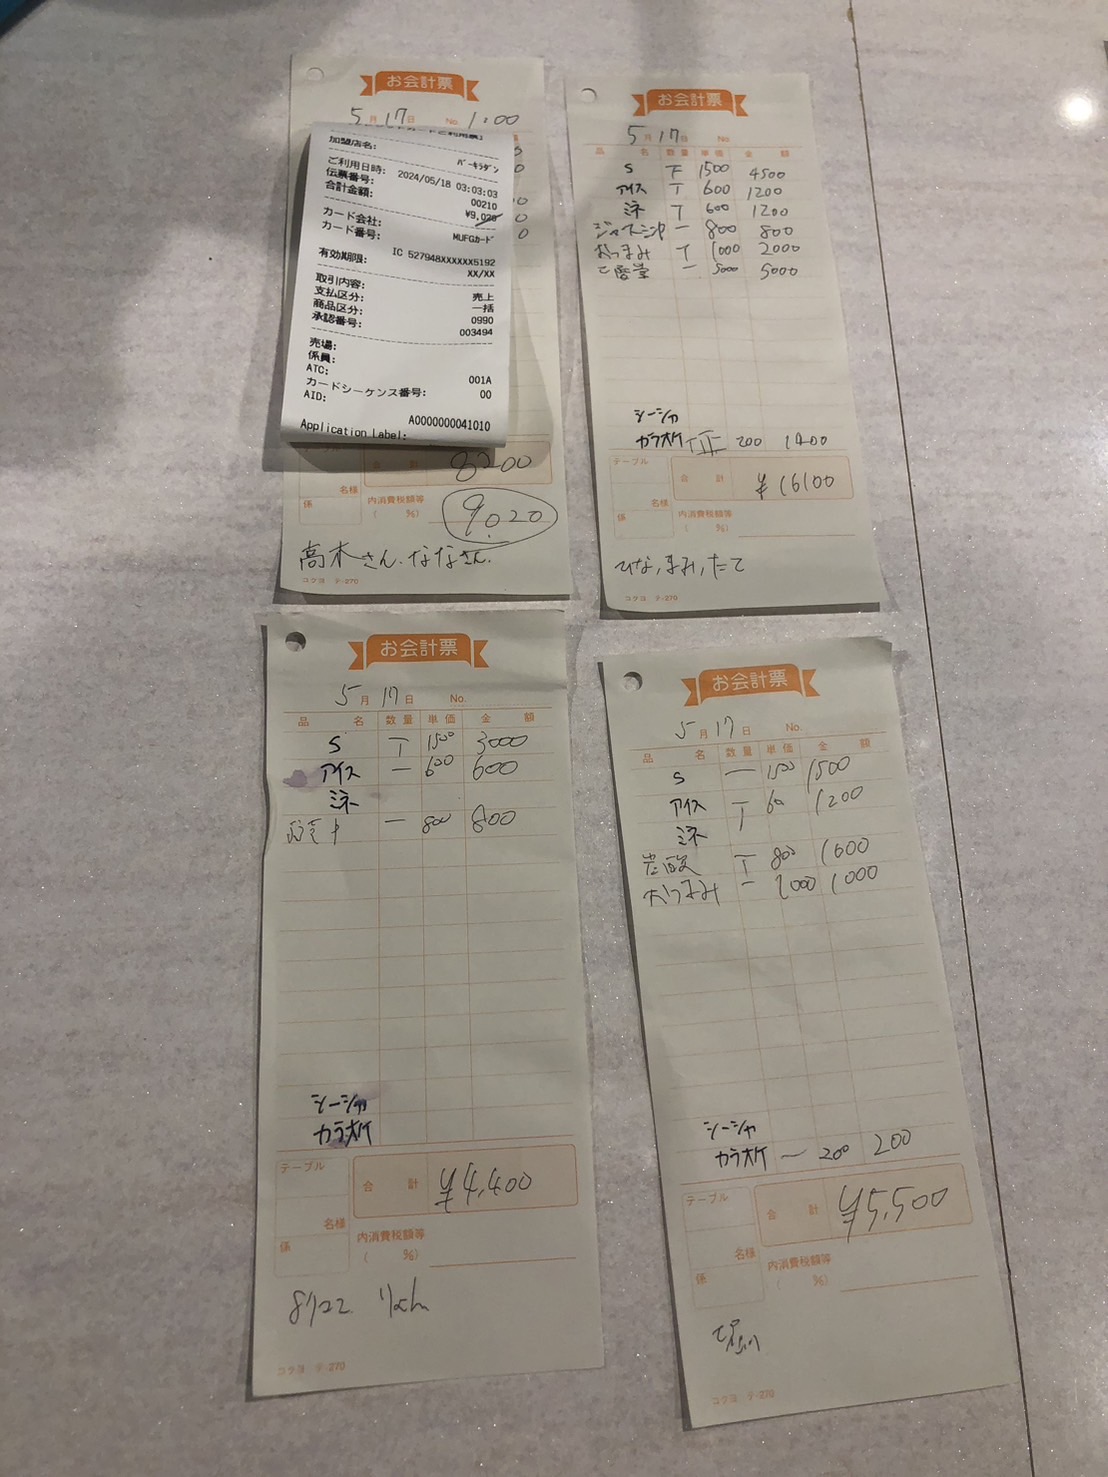 お会計票
5月17日 No. 1:00
加盟店名:
バーキラザン
ご利用日時: 2024/05/18 03:03:03
伝票番号: 00210
合計金額: ¥9,020
カード会社: MUFGカード
カード番号:
IC 527948XXXXXX5192
有効期限: XX/XX
取引内容: 売上
支払区分: 一括
商品区分: 0990
承認番号: 003494
売場:
係員:
ATC: 001A
カードシーケンス番号: 00
AID:
A0000000041010
Application Label:
テーブル
合計 8200
名様
係
内消費税額等
( %)
9,020
高木さん、ななさん
コクヨ テ-270
お会計票
5月17日 No.
品名 数量 単価 金額
S 下 1500 4500
アイス T 600 1200
ミネ T 600 1200
一 800 800
おつまみ T 1000 2000
一 5000 5000
シーシャ
カラオケ 200 1400
テーブル
合計 ¥16100
名様
係
内消費税額等
( %)
ひな,まみ,たて
コクヨ テ-270
お会計票
5月17日 No.
品名 数量 単価 金額
S T 1500 3000
アイス 一 600 600
ミネ
一 800 800
シーシャ
カラオケ
テーブル
合計 ¥4,400
名様
係
内消費税額等
( %)
コクヨ テ-270
お会計票
5月17日 No.
品名 数量 単価 金額
S 一 1500 1500
アイス T 60 1200
ミネ
炭酸 T 800 1600
おつまみ 一 1000 1000
シーシャ
カラオケ 一 200 200
テーブル
合計 ¥5,500
名様
係
内消費税額等
( %)
コクヨ テ-270